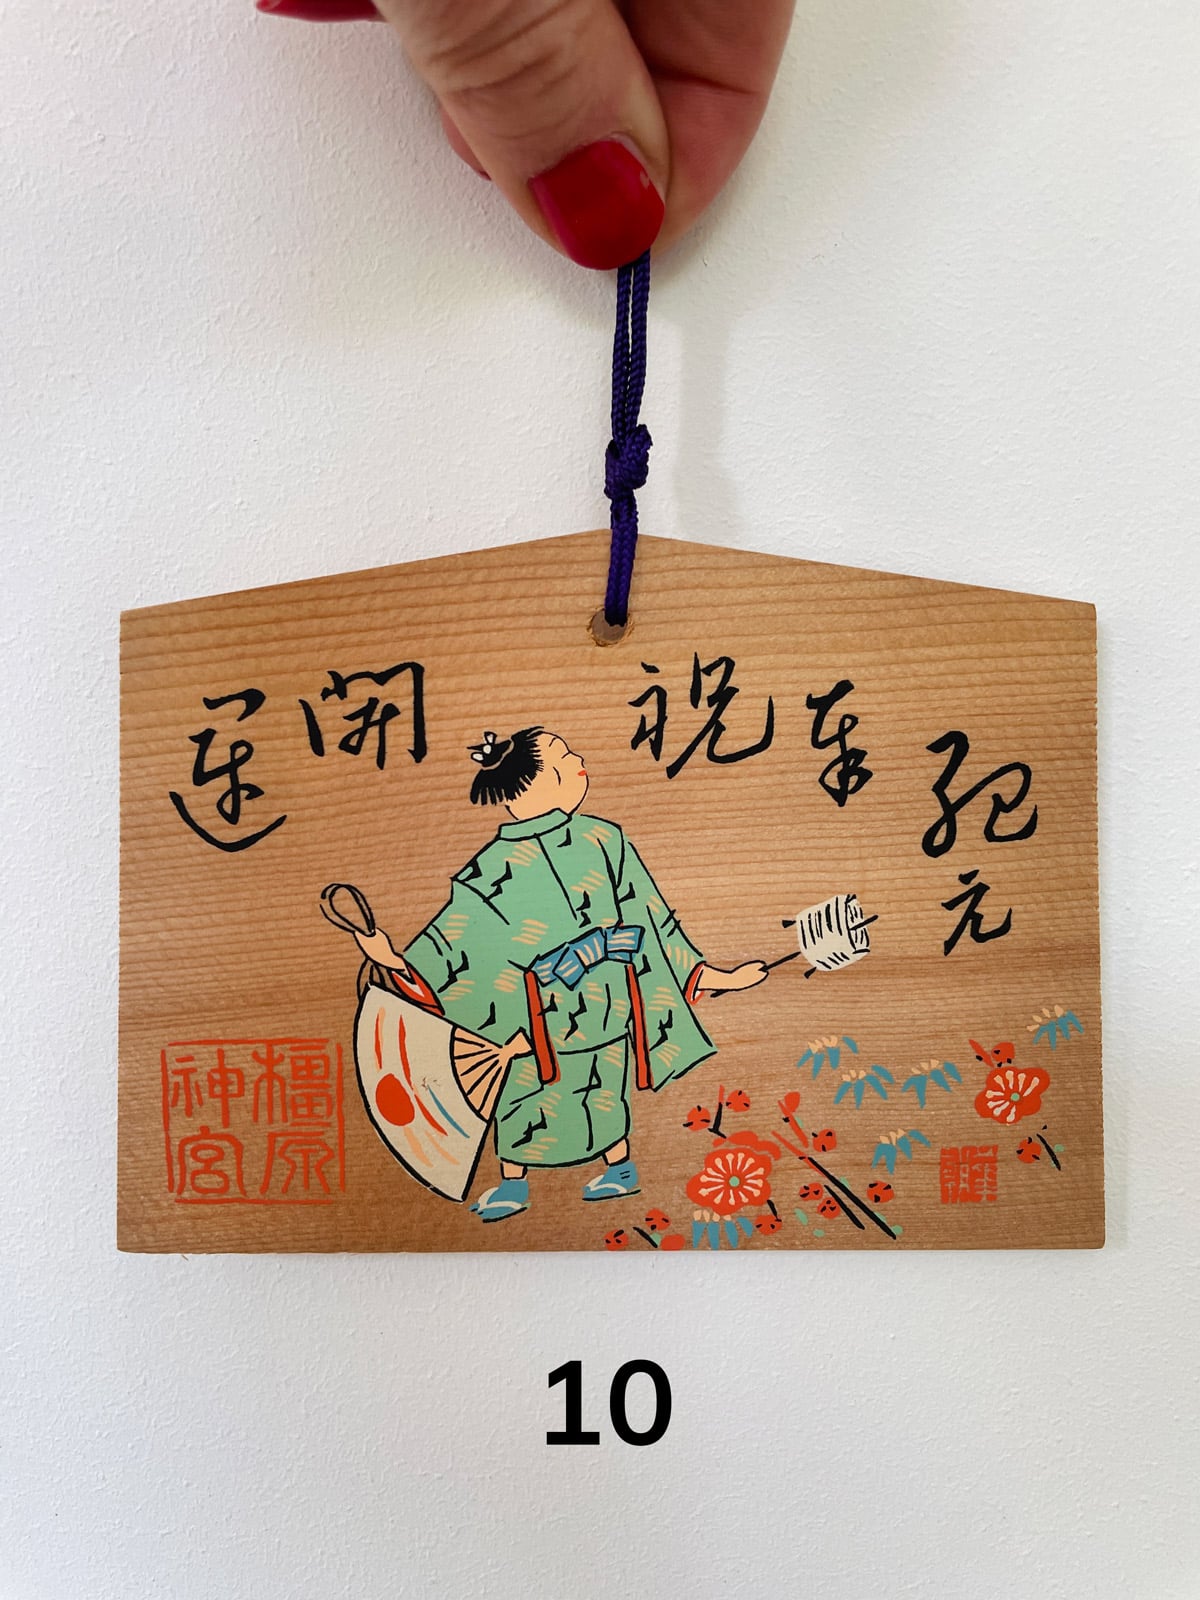 紀元
奉祝
開運
橿原
神宮
10